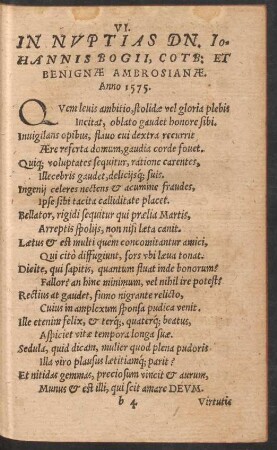 VI.
IN NVPTIAS DN. Io-
HANNIS BOGII, COTB: ET
BENIGNÆ AMBROSIANÆ.
Anno 1575.
QVem leuis ambitio, stolidæ vel gloria plebis
Incitat, oblato gaudet honore sibi.
Inuigilans opibus, flauo cui dextra recurrit
Ære referta domum, gaudia corde fouet.
Quiq; voluptates sequitur, ratione carentes,
Illecebris gaudet, delicijsq; suis.
Ingenij celeres nectens & acumine fraudes,
Ipse sibi tacita calliditate placet.
Bellator, rigidi sequitur qui prælia Martis,
Arreptis spolijs, non nisi læta canit.
Lætus & est multi quem concomitantur amici,
Qui citò diffugiunt, sors vbi læua tonat.
Dicite, qui sapitis, quantum fluat inde bonorum?
Fallor? an hinc minimum, vel nihil ire potest?
Rectius at gaudet, fumo nigrante relicto,
Cuius in amplexum sponsa pudica venit.
Ille etenim felix, & terq;, quaterq; beatus,
Aspiciet vitæ tempora longa suæ.
Sedula, quid dicam, mulier quod plena pudoris
Illa viro plausus lætitiamq; parit?
Et nitidas gemmas, preciosum vincit & aurum,
Munus & est illi, qui scit amare DEVM.
b 4 Virtutis